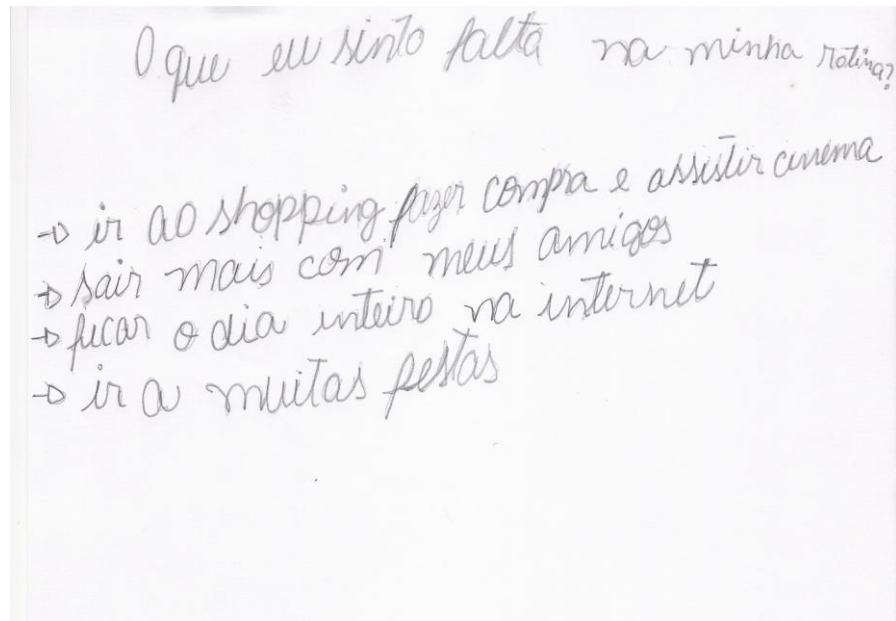 O que eu sinto falta na minha rotina?
→ ir ao shopping fazer compra e assistir cinema
→ sair mais com meus amigos
→ ficar o dia inteiro na internet
→ ir a muitas festas